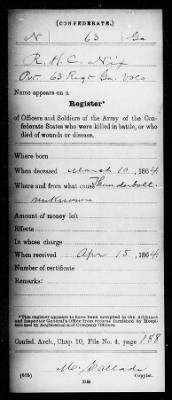 (CONFEDERATE.)
N 63 Ga
R. H. C. Nix
Pvt. 63 Regt Ga. Vols
Name appears on a
Register*
of Officers and Soldiers of the Army of the Con-
federate States who were killed in battle, or who
died of wounds or disease.
Where born
When deceased March 10, 1864
Where and from what cause Thunderbolt
unknown
Amount of money left
Effects
In whose charge
When received Apr. 15, 1864
Number of certificate
Remarks:
*This register appears to have been compiled in the Adjutant
and Inspector General's Office from returns furnished by Hospi-
tals and by Regimental and Company Officers.
Confed. Arch., Chap. 10, File No. 4, page 188
Copyist.